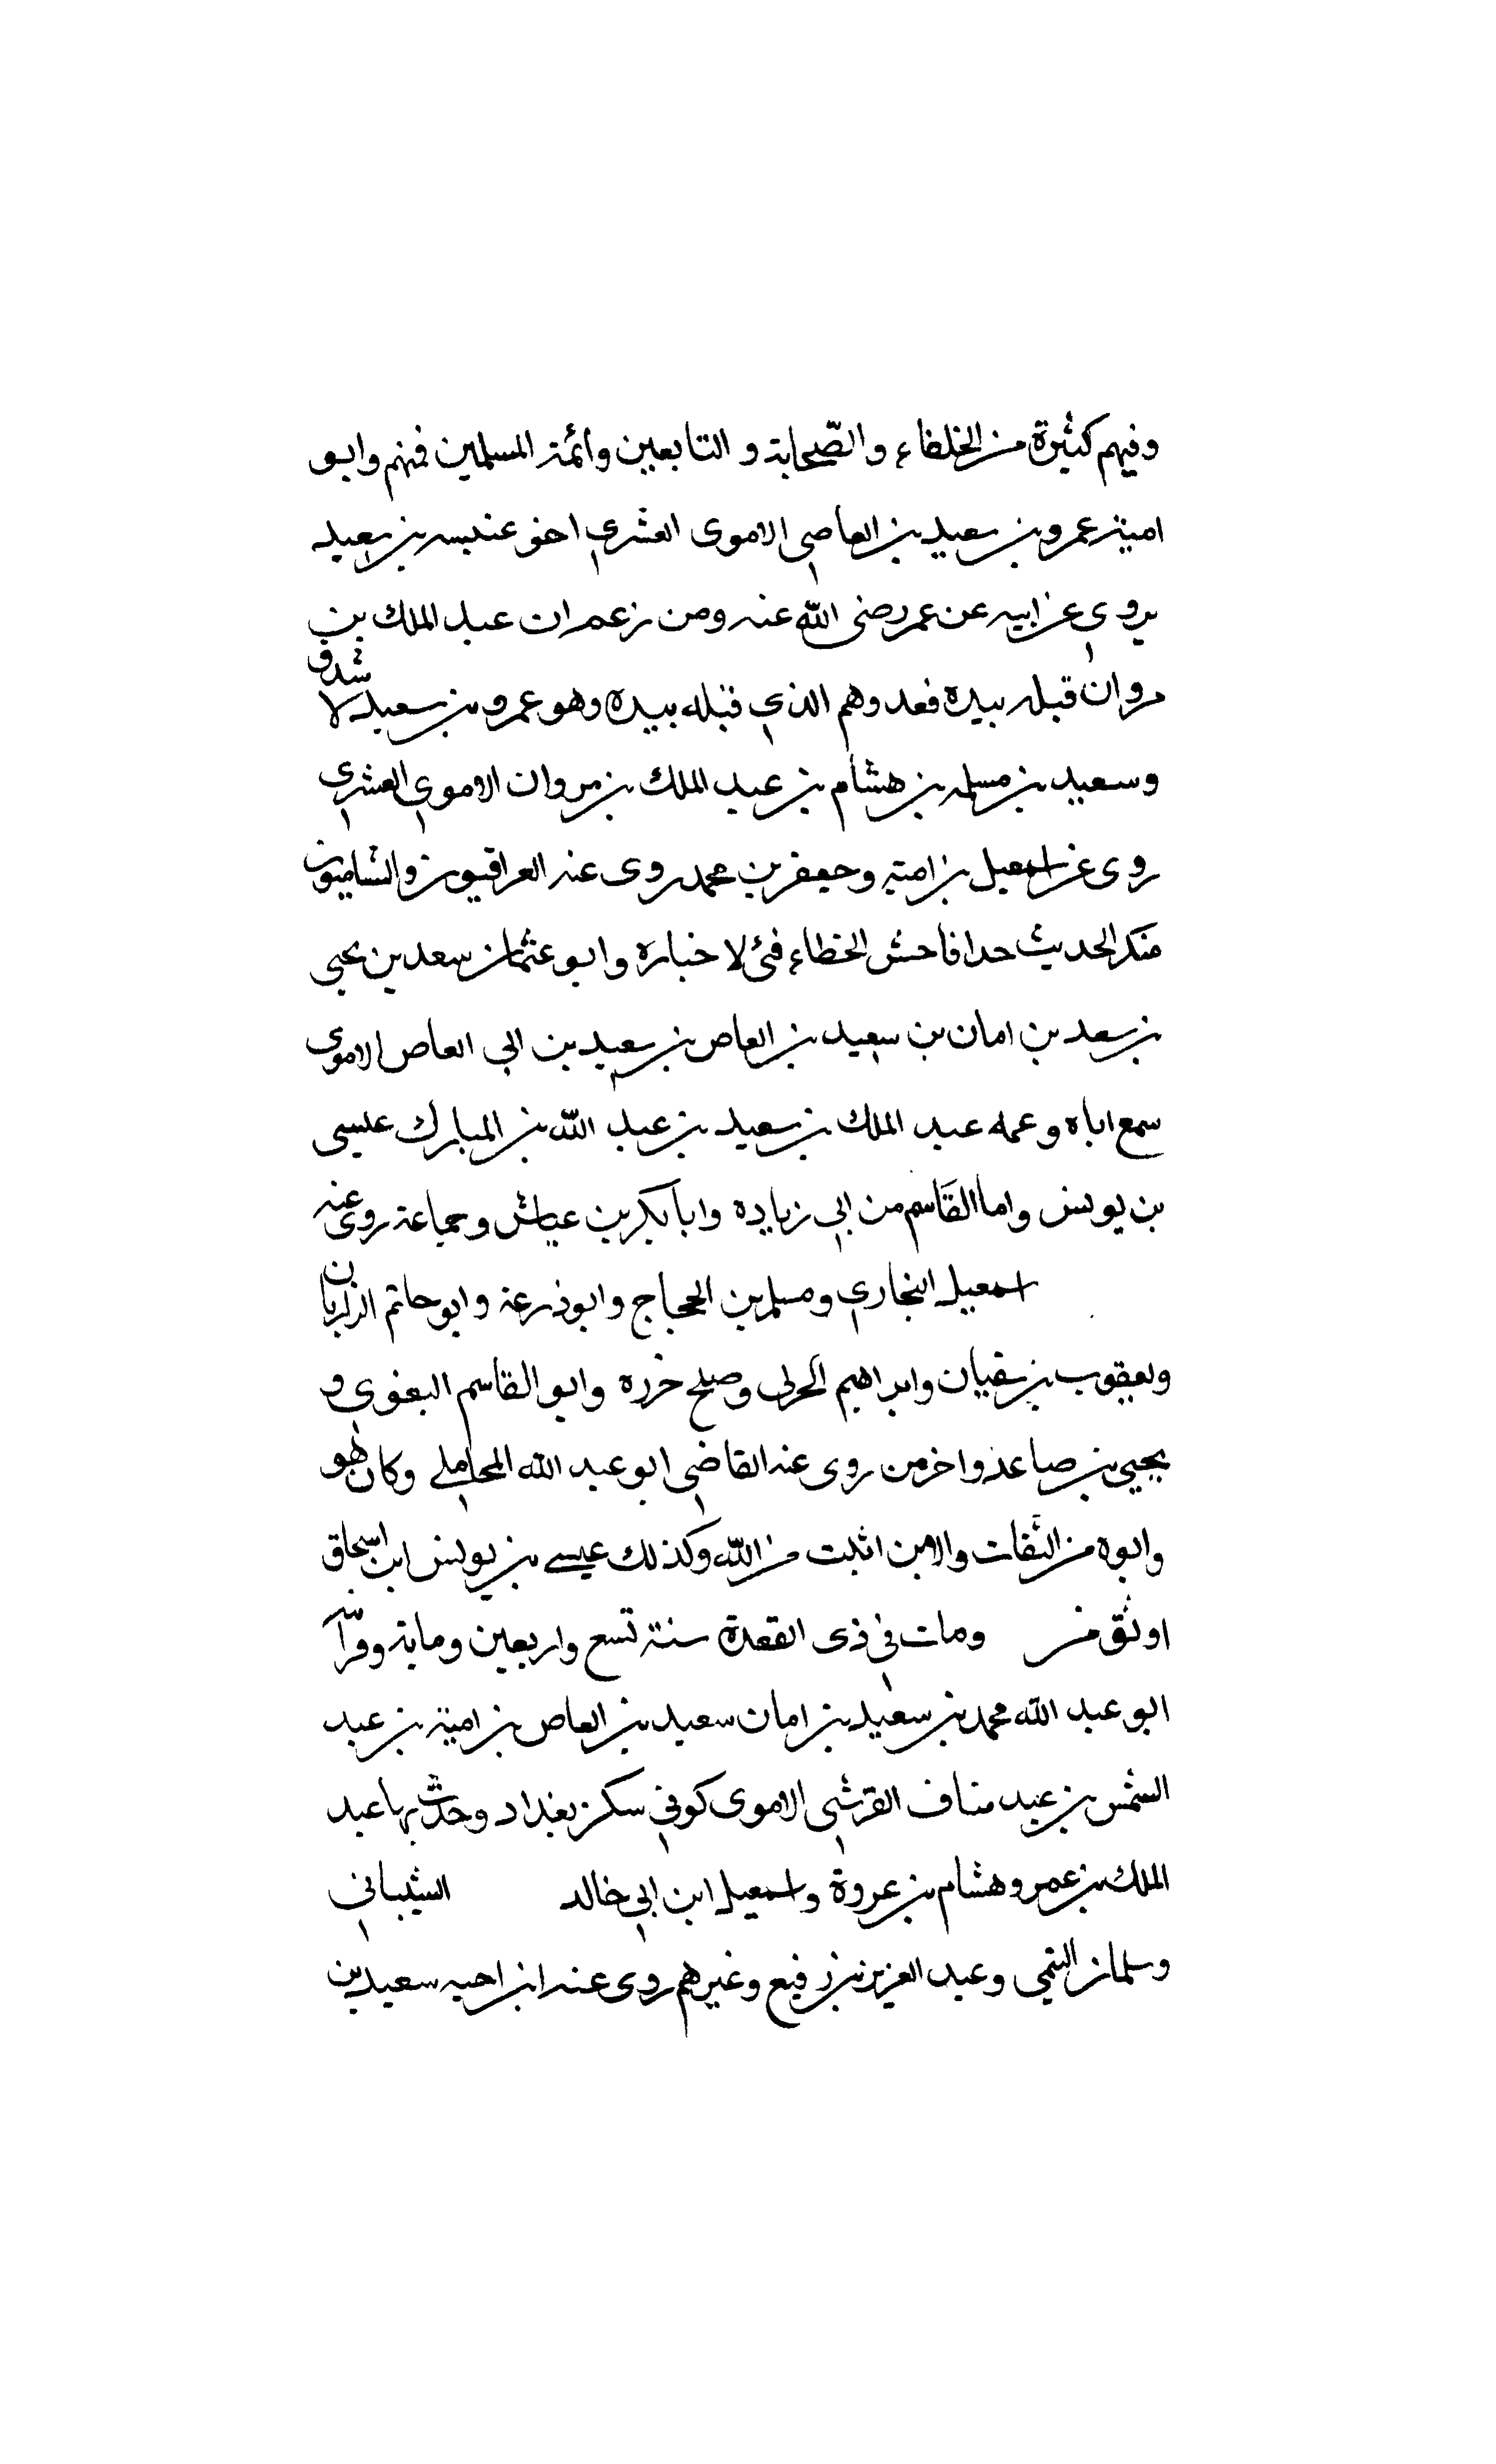 وفيهم كثيرة من الخلفاء والصّحابة و التابعين وأئمة المسلمين فمنهم وابو
امية عمرو بن سعيد بن العاصي الاموى العشري اخو عنبسه بن سعيد
يروي عن ابيه عن عمر رضى الله عنه ومن زعم ان عبد الملك بن
مروان قبله بيده فعد وهم الذي قتله بيده وهو عمرو بن سعيد لا شدق
وسعيد بن مسلمه بن هشام بن عبد الملك بن مروان الاموي العشري
روى عن اسمعيل بن امية وجعفر بن محمد روى عنه العراقيون والشاميون
منكر الحديث جدا فاحش الخطاء فى لا خباره وابو عثمان سعد بن يحيى
بن سعد بن امان بن سعيد بن العاص بن سعيد بن ابي العاص الاموي
سمع اباه وعمه عبد الملك بن سعيد بن عبد الله بن المبارك عيسى
بن يونس واما القاسم من ابي زياده وابا بكر بن عياش وجماعة روى عنه
اسمعيل البخاري ومسلم بن الحجاج وابو ذرعة وابو حاتم الرازيان
ويعقوب بن سفيان وابراهيم الحربى وصلح خرره وابو القاسم البغوي و
يحيى بن صاعد واخر من روى عنه القاضي ابو عبد الله المحاملي وكان هو
وابوه من الثقات والابن اثبت من الله وكذلك عيسى بن يونس ابن اسحاق
اوثق من ومات في ذى القعدة سنة تسع واربعين وماية
ابو عبد الله محمد بن سعيد بن امان سعيد بن العاص بن امية بن عبد
الشمس بن عبد مناف القرشي الاموى كوفي سكن بغداد وحدث بها عبد
الملك بن عمر وهشام بن عروة واسمعيل ابن ابي خالد الشيبانى
وسلمان التيمى وعبد العزيز بن رفيع وغيرهم روى عنه ابن اخيه سعيد بن